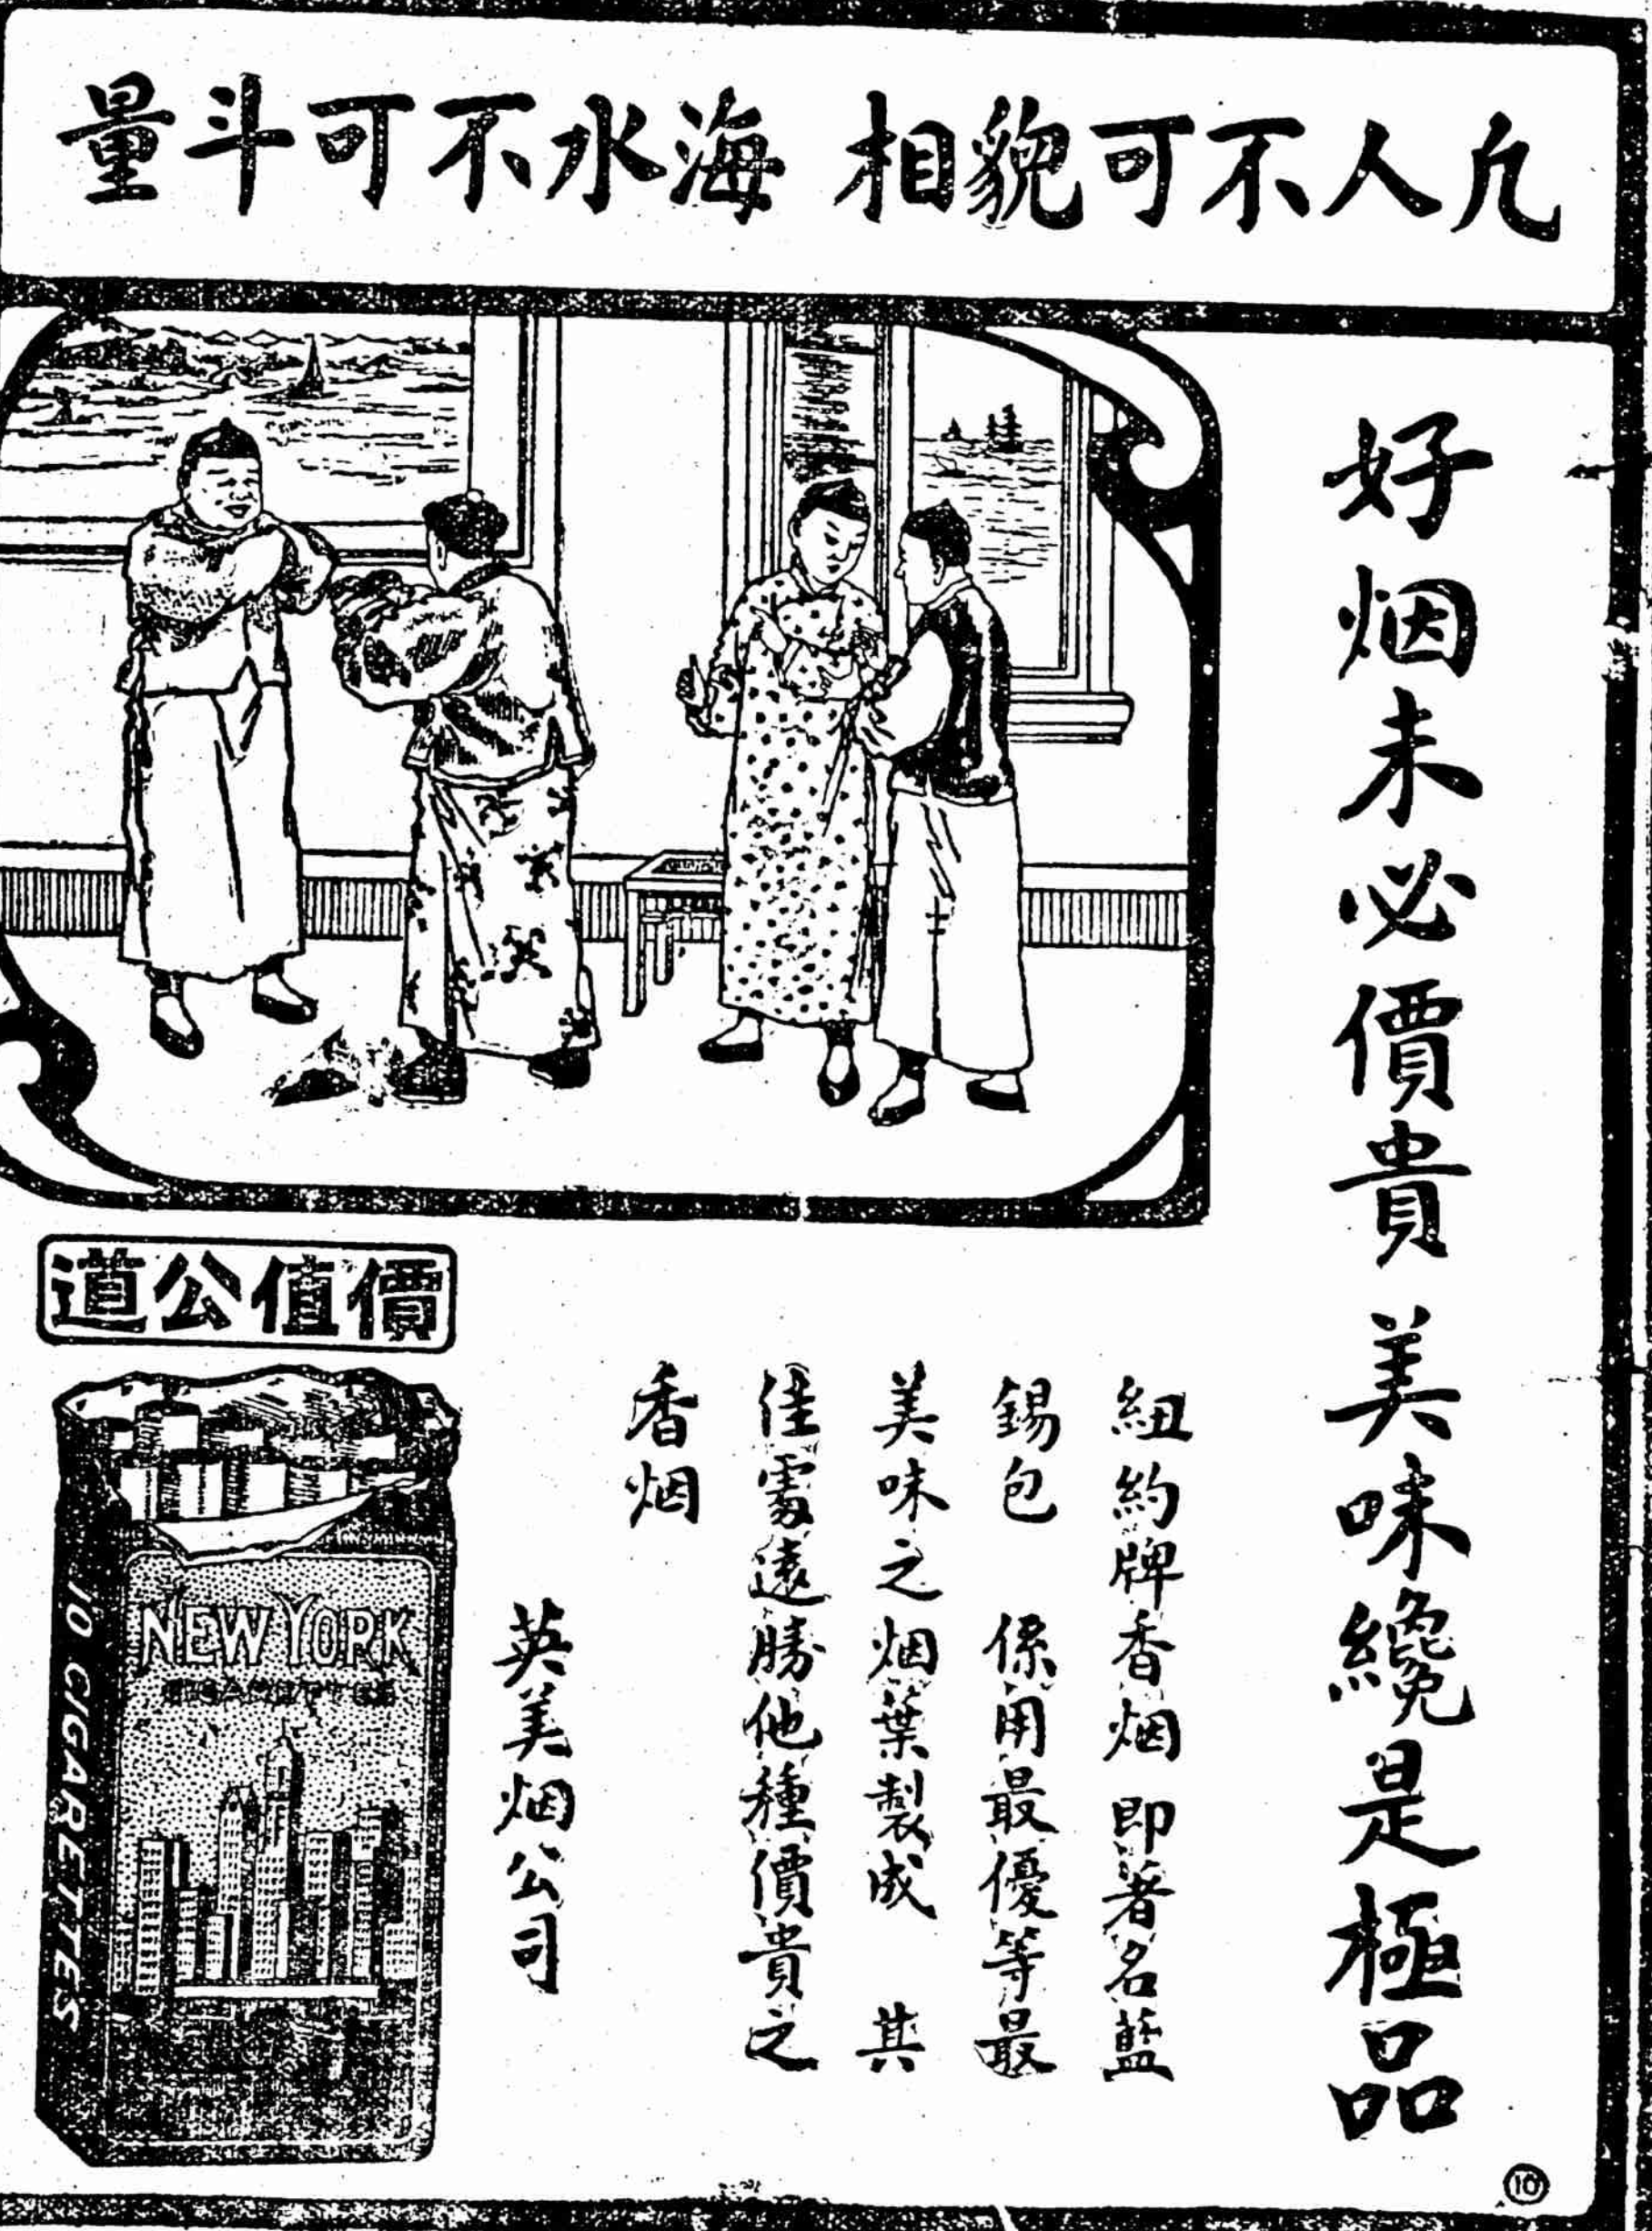 凢人不可貌相 海水不可斗量
好烟未必價貴 美味纔是極品
紐約牌香烟 即著名藍
錫包 係用最優等最
美味之烟葉製成 其
佳處遠勝他種價貴之
香烟
英美烟公司
價值公道
NEW YORK
CIGARETTES
10 CIGARETTES
10